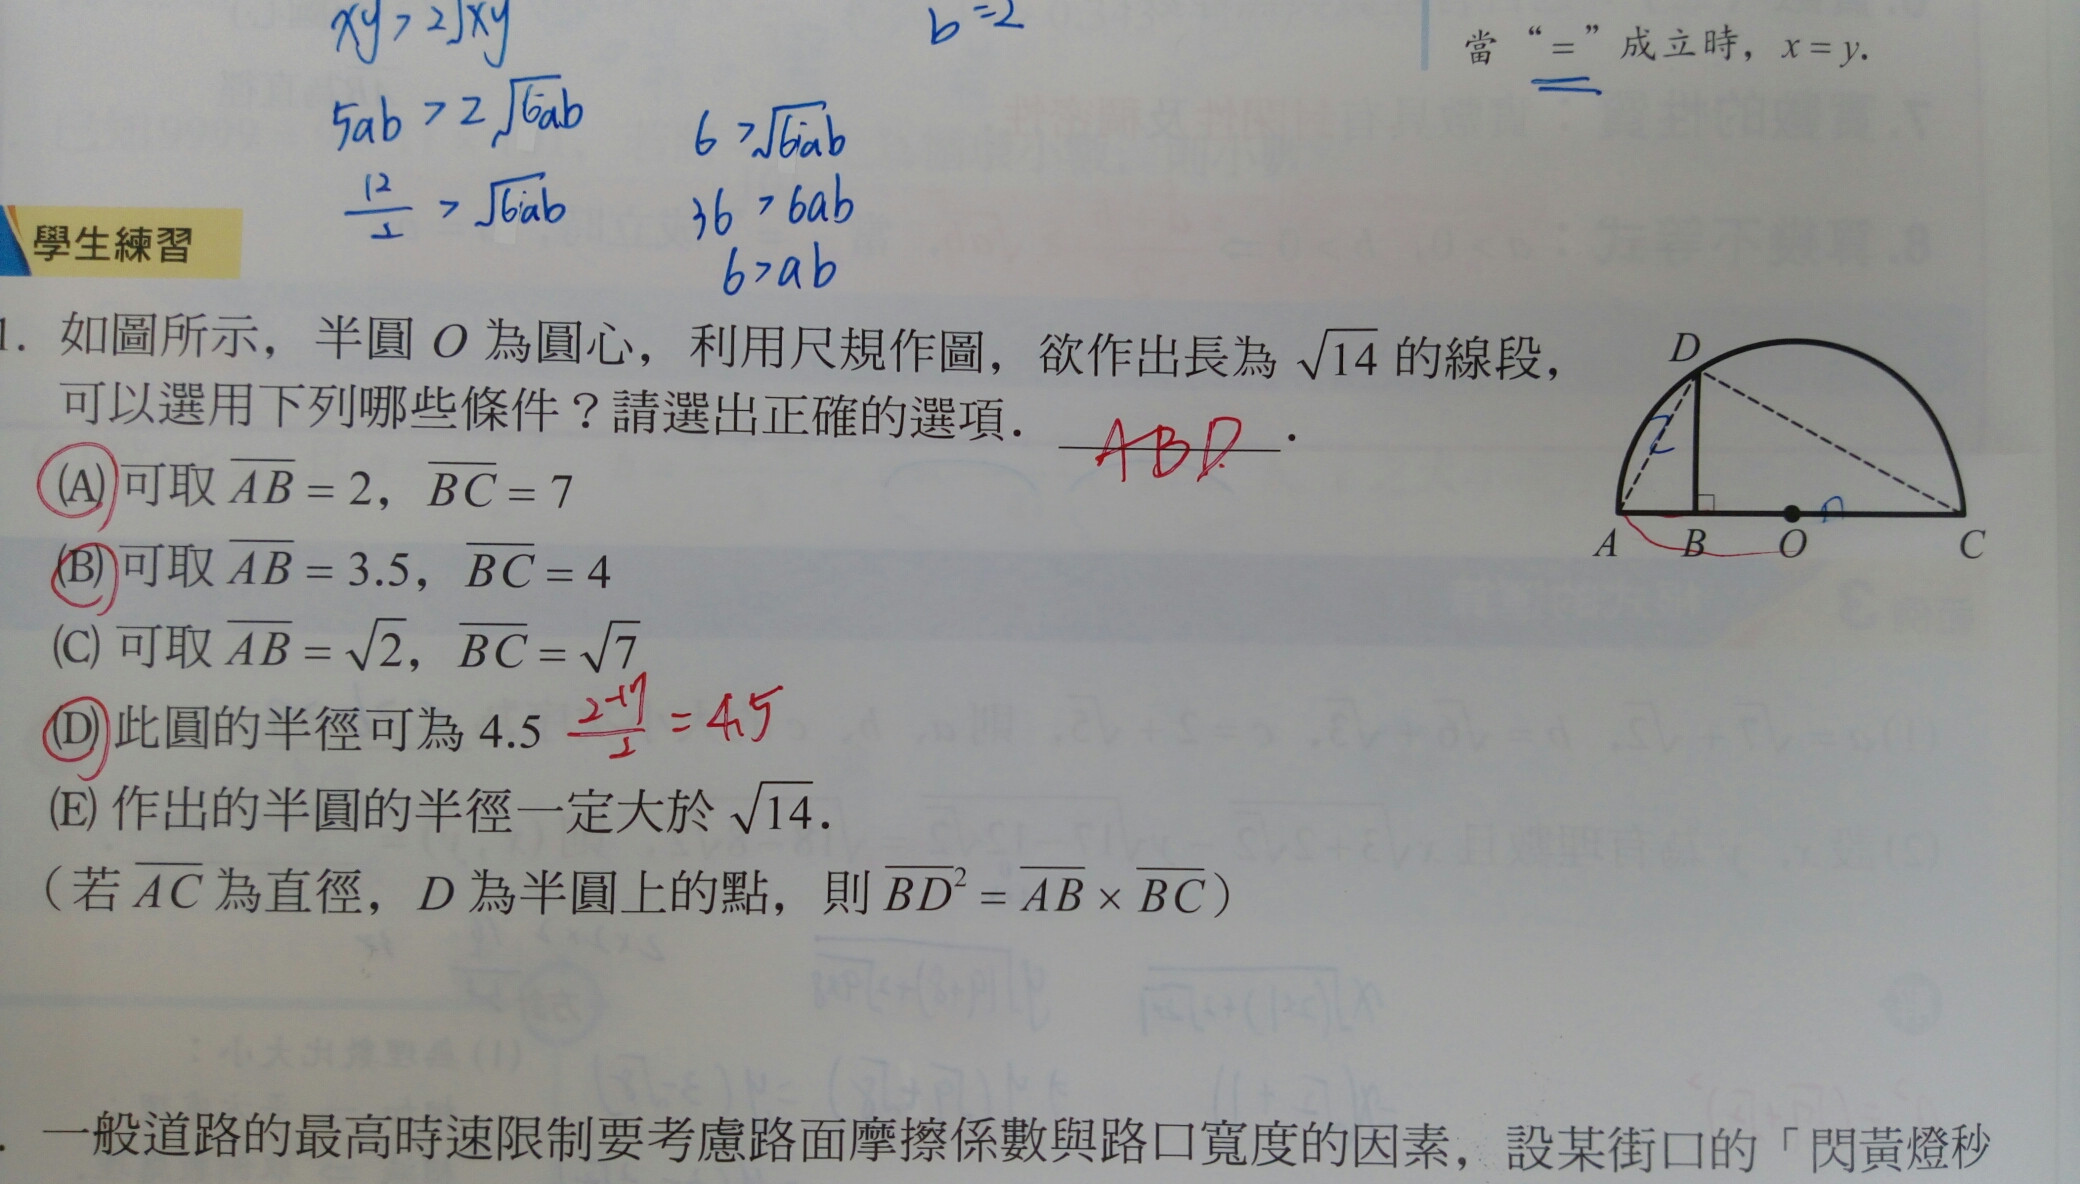 xy > 2√xy
b = 2
當 “=” 成立時，x = y.
5ab > 2√6ab
6 > √6ab
12/2 > √6ab
36 > 6ab
6 > ab
學生練習
1. 如圖所示，半圓 O 為圓心，利用尺規作圖，欲作出長為 √14 的線段，
可以選用下列哪些條件？請選出正確的選項． ABD ．
(A) 可取 AB = 2，BC = 7
(B) 可取 AB = 3.5，BC = 4
(C) 可取 AB = √2，BC = √7
(D) 此圓的半徑可為 4.5 (2+7)/2 = 4.5
(E) 作出的半圓的半徑一定大於 √14．
（若 AC 為直徑，D 為半圓上的點，則 BD² = AB × BC）
D
A B O C
一般道路的最高時速限制要考慮路面摩擦係數與路口寬度的因素，設某街口的「閃黃燈秒